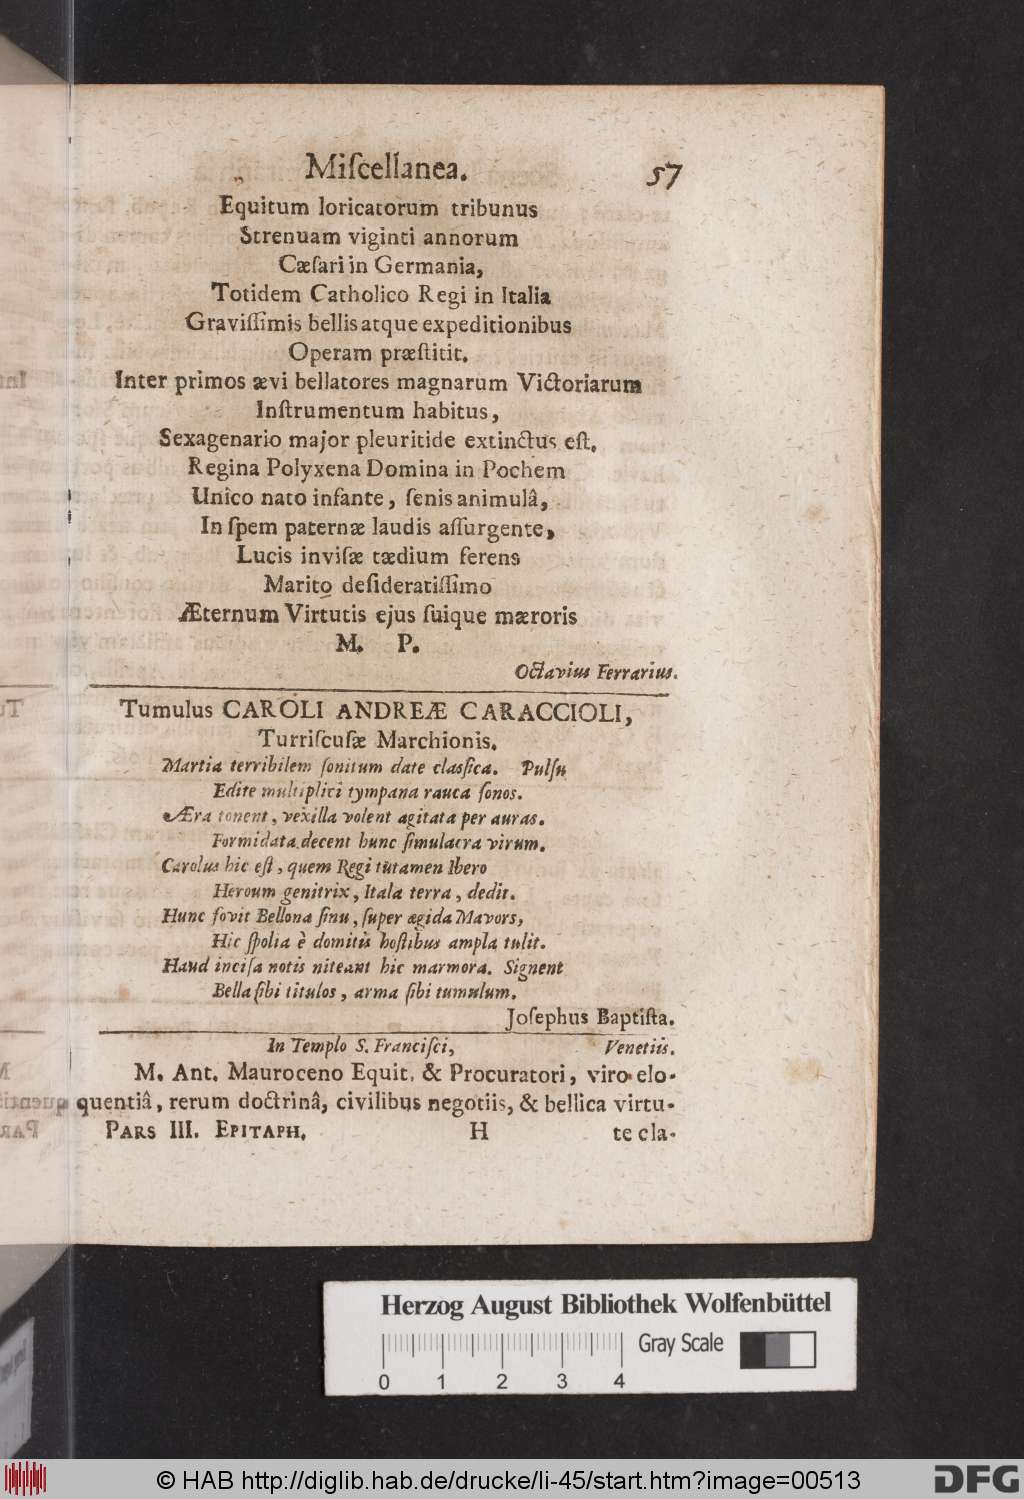 Miſcellanea. 57
Equitum loricatorum tribunus
Strenuam viginti annorum
Cæſari in Germania,
Totidem Catholico Regi in Italia
Graviſſimis bellis atque expeditionibus
Operam præſtitit.
Inter primos ævi bellatores magnarum Victoriarum
Inſtrumentum habitus,
Sexagenario major pleuritide extinctus eſt.
Regina Polyxena Domina in Pochem
Unico nato infante, ſenis animulâ,
In ſpem paternæ laudis aſſurgente,
Lucis inviſæ tædium ferens
Marito deſideratiſſimo
Æternum Virtutis ejus ſuique mæroris
M. P.
Octavius Ferrarius.
Tumulus CAROLI ANDREÆ CARACCIOLI,
Turriſcuſæ Marchionis.
Martia terribilem ſonitum date claſſica. Pulſu
Edite multiplici tympana rauca ſonos.
Æra tonent, vexilla volent agitata per auras.
Formidata decent hunc ſimulacra virum.
Carolus hic eſt, quem Regi tutamen Ibero
Heroum genitrix, Itala terra, dedit.
Hunc fovit Bellona ſinu, ſuper ægida Mavors,
Hic ſpolia è domitis hoſtibus ampla tulit.
Haud inciſa notis niteant hic marmora. Signent
Bella ſibi titulos, arma ſibi tumulum.
Joſephus Baptiſta.
In Templo S. Franciſci, Venetiis.
M. Ant. Mauroceno Equit. & Procuratori, viro elo-
quentiâ, rerum doctrinâ, civilibus negotiis, & bellica virtu-
PARS III. EPITAPH. H te cla-
Herzog August Bibliothek Wolfenbüttel
Gray Scale
0 1 2 3 4
© HAB http://diglib.hab.de/drucke/li-45/start.htm?image=00513
DFG